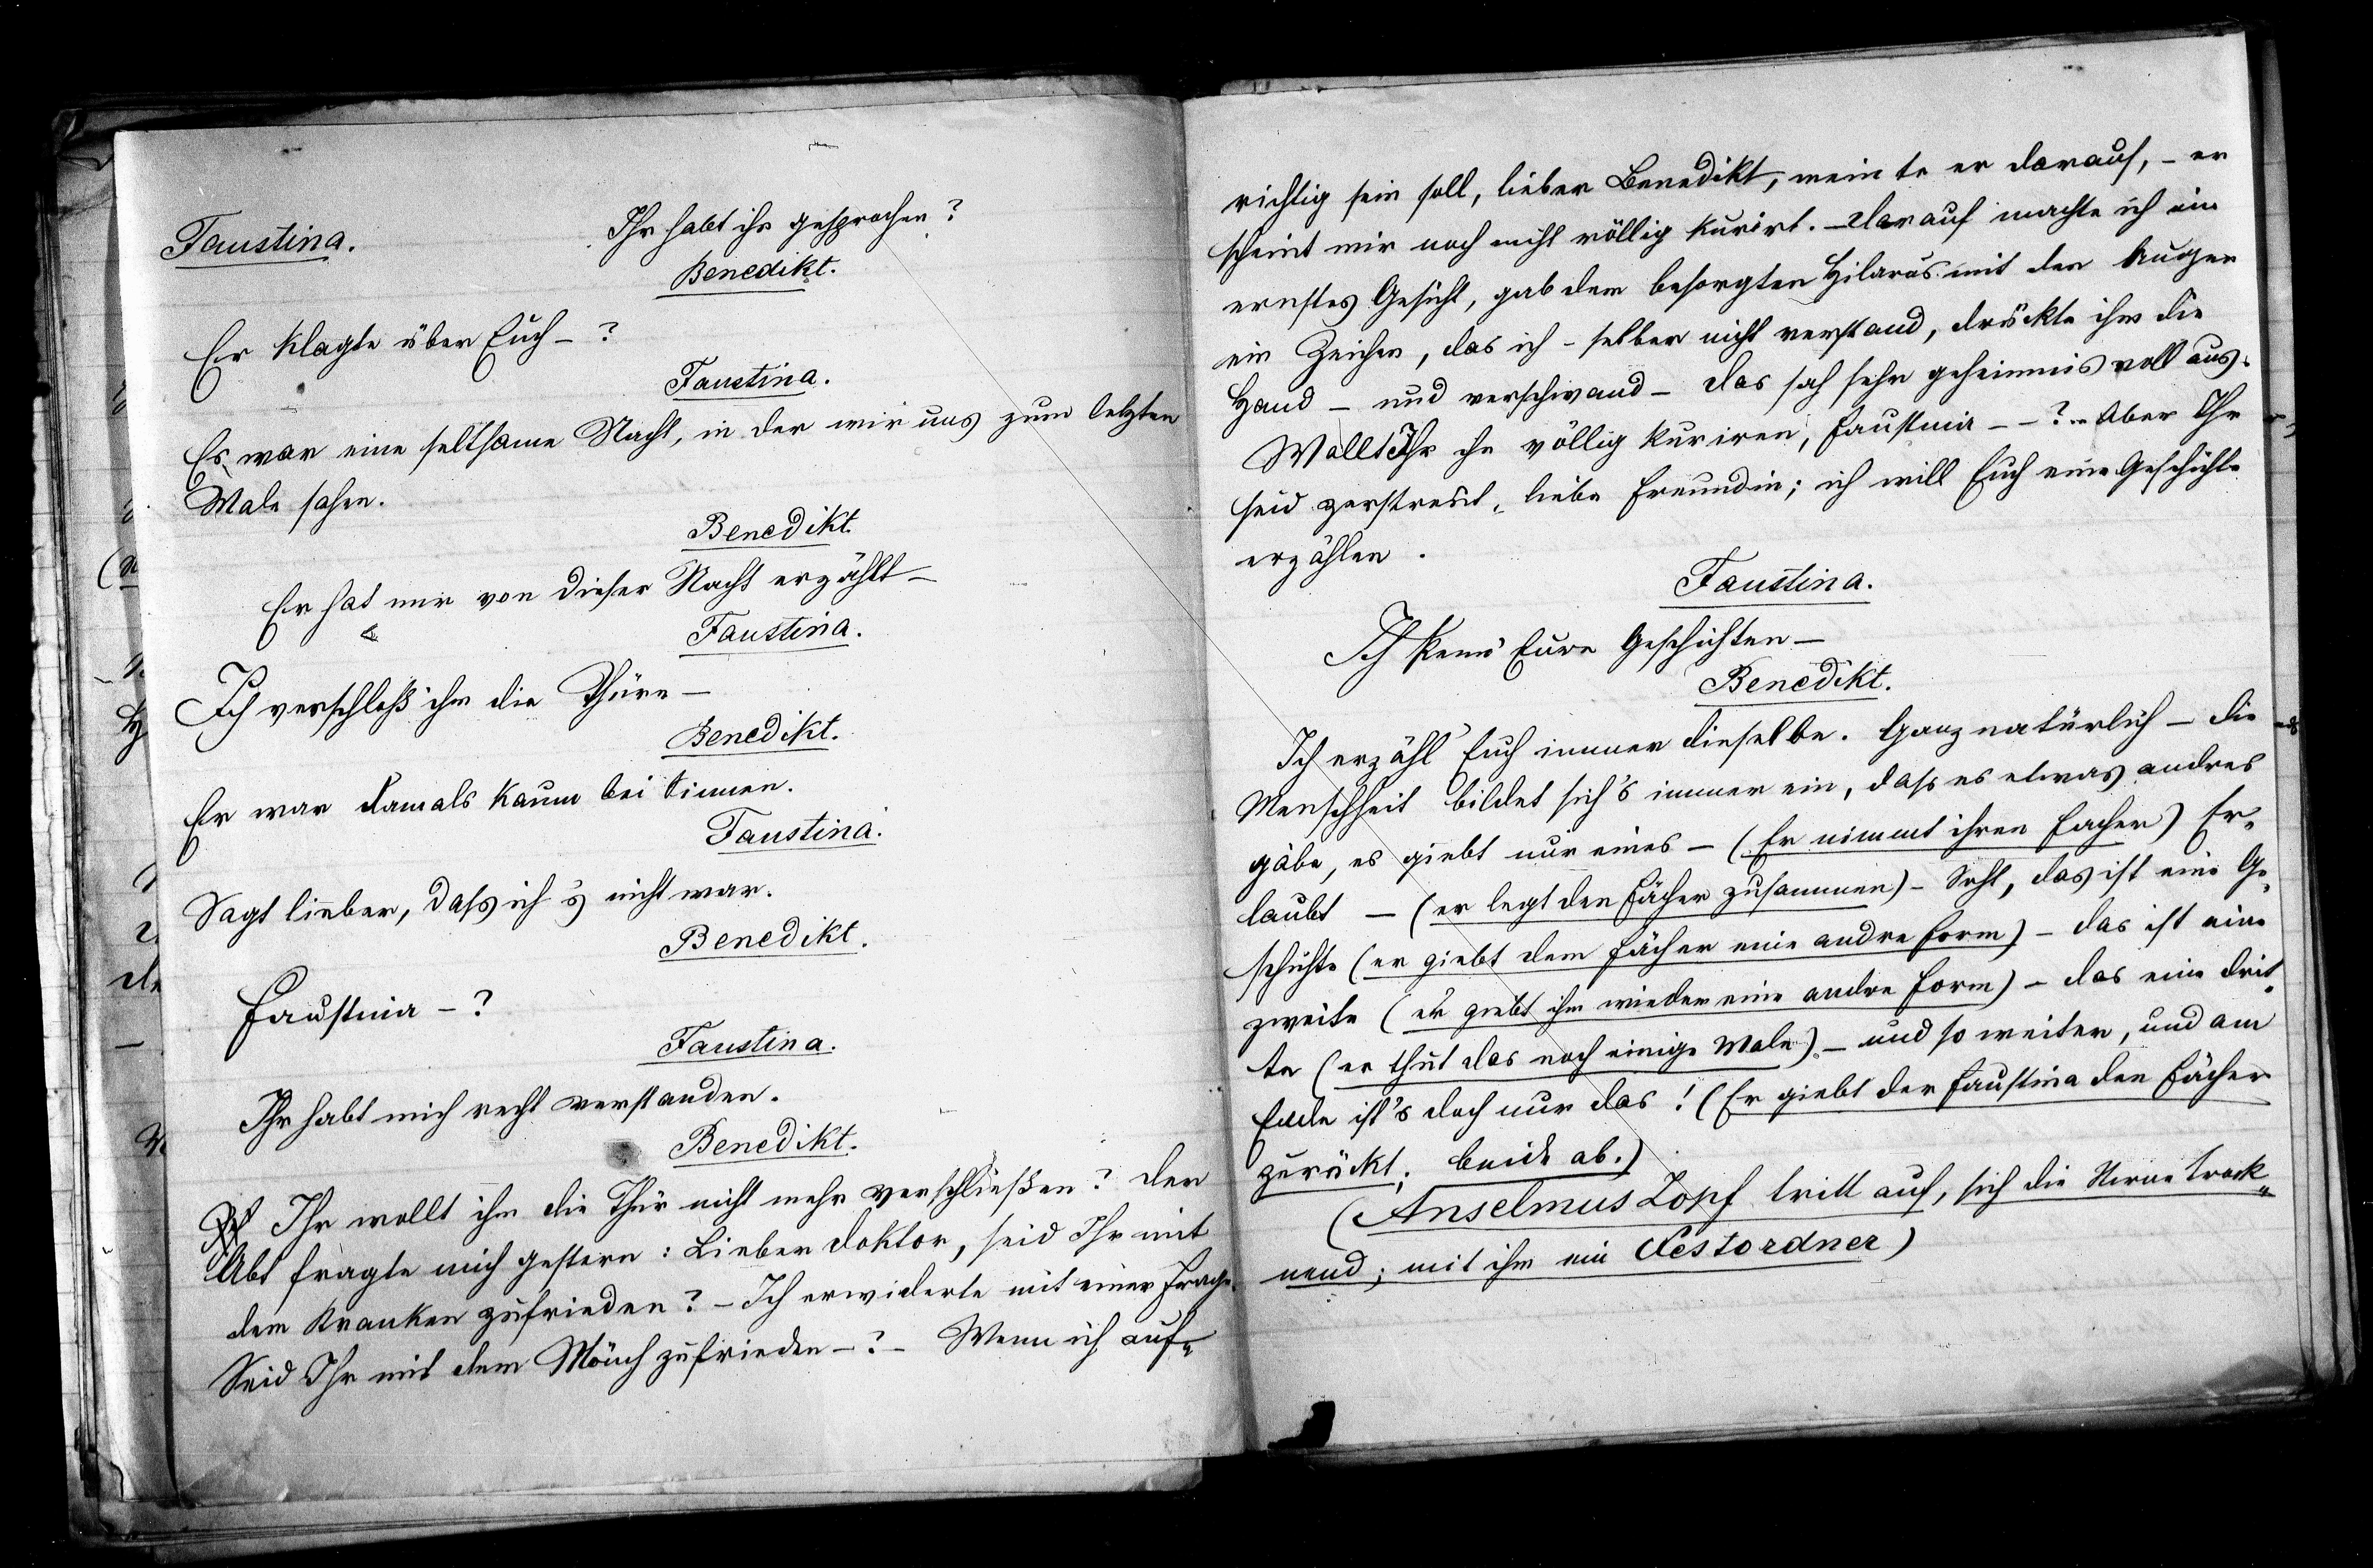 Faustina.
Ihr habt ihn gesprochen?
Benedikt.
Er klagte über Euch – ?
Faustina.
Es war eine seltsame Nacht, in der wir uns zum letzten
Male sahen.
Benedikt.
Er hat mir von dieser Nacht erzählt –
Faustina.
Ich verschloß ihm die Thüre –
Benedikt.
Er war damals kaum bei Sinnen.
Faustina.
Sagt lieber, dass ich's nicht war.
Benedikt.
Faustina – ?
Faustina.
Ihr habt mich recht verstanden.
Benedikt.
Ihr wollt ihm die Thür nicht mehr verschließen? Der
Abt fragte mich gestern: Lieber Doktor, seid Ihr mit
dem Kranken zufrieden? – Ich erwiderte mit einer Frage.
Seid Ihr mit dem Mönch zufrieden – ? – Wenn ich auf-
richtig sein soll, lieber Benedikt, meinte er darauf, – er
scheint mir noch nicht völlig kurirt. – Darauf machte ich ein
ernstes Gesicht, gab dem besorgten Hilarius mit den Augen
ein Zeichen, das ich – selber nicht verstand, drückte ihm die
Hand – und verschwand – Das sah sehr geheimnisvoll aus.
Wollt Ihr ihn völlig kuriren, Faustina – – ? – Aber Ihr
seid zerstreut, liebe Freundin; ich will Euch eine Geschichte
erzählen.
Faustina.
Ich kenn' Eure Geschichten –
Benedikt.
Ich erzähl' Euch immer dieselbe. Ganz natürlich – die
Menschheit bildet sich's immer ein, dass es etwas andres
gäbe, es giebt nur eines – (Er nimmt ihren Facher) Er-
laubt – (er legt den Fächer zusammen) – Seht, das ist eine Ge-
schichte (er giebt dem Fächer eine andre Form) – das ist eine
zweite (er giebt ihm wieder eine andre Form) – das eine drit-
te (er thut das noch einige Male) – und so weiter, und am
Ende ist's doch nur das! (Er giebt der Faustina den Fächer
zurückt; beide ab.)
(Anselmus Zopf tritt auf, sich die Stirne trock-
nend; mit ihm ein Festordner)